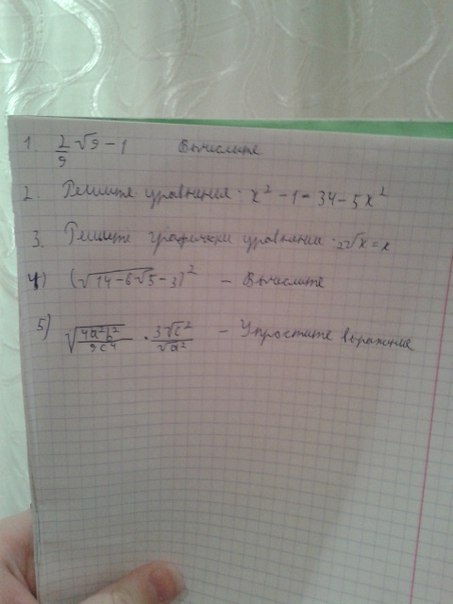 1. 2/9 √9 - 1 Вычислите
2. Решите уравнения: x² - 1 = 34 - 5x²
3. Решите графически уравнение: 2√x = x
4) (√14-6√5 - 3)² - Вычислите
5) √4a²b²/9c⁴ · 3√c²/√a² - Упростите выражение